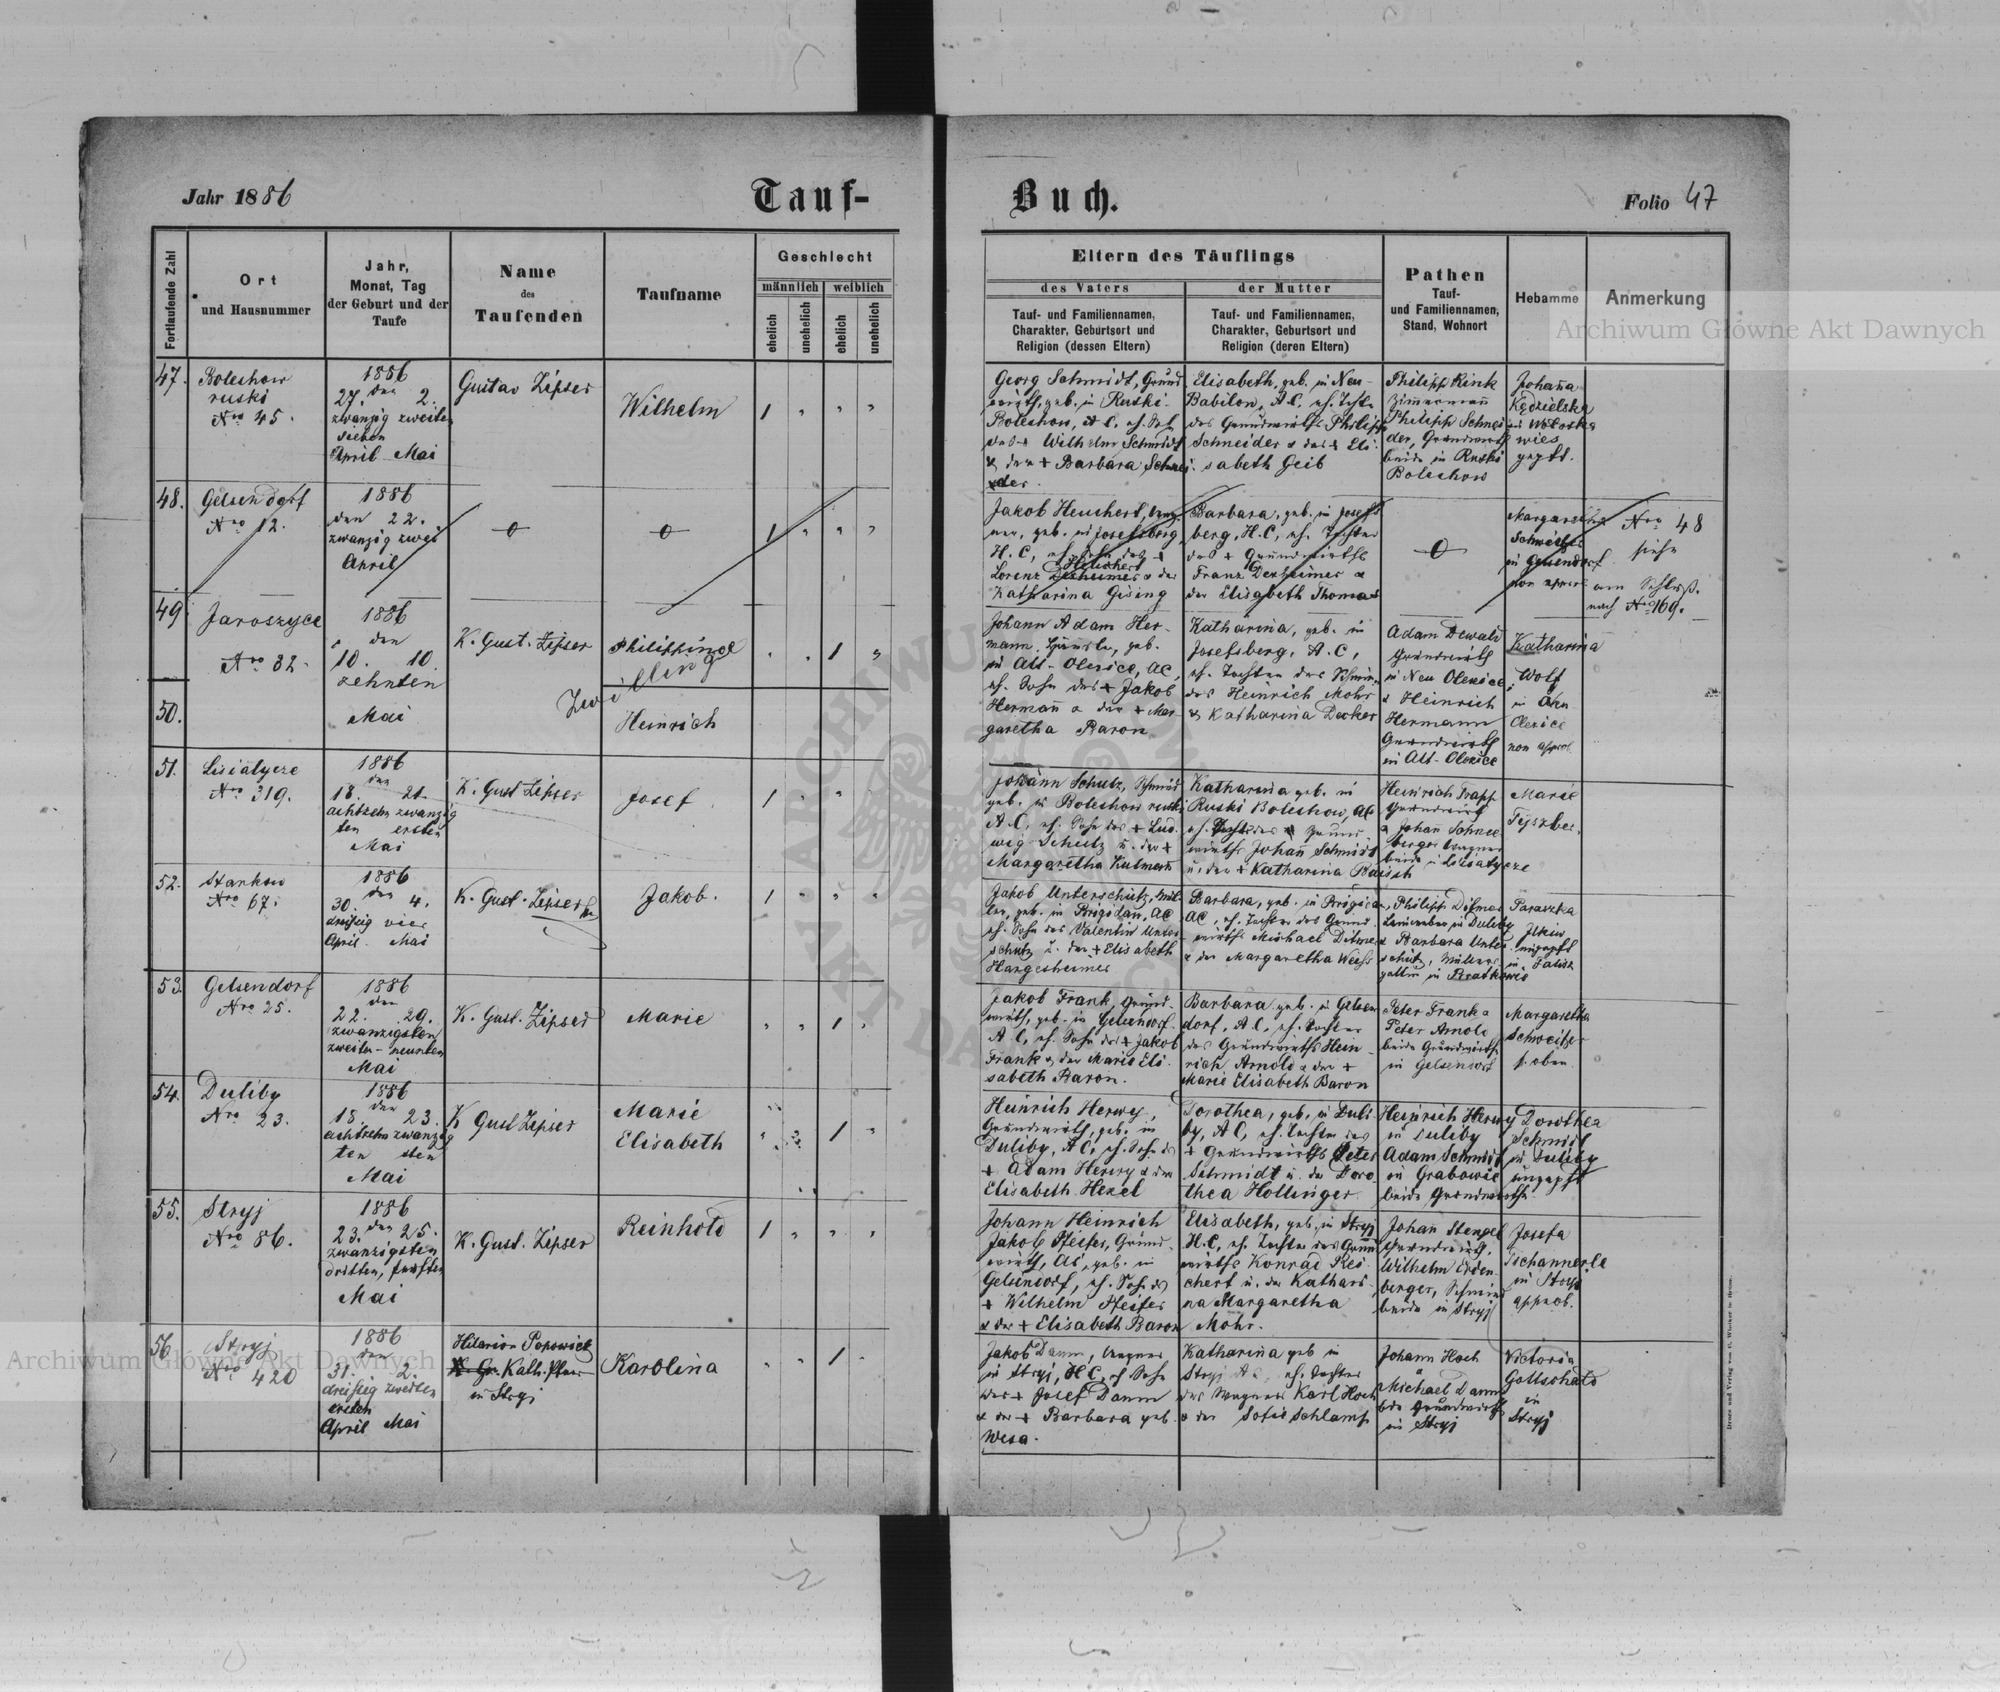 Jahr 1886
Tauf-
Buch.
Folio 47
Fortlaufende Zahl
Ort
und Hausnummer
Jahr,
Monat, Tag
der Geburt und der
Taufe
Name
des
Taufenden
Taufname
Geschlecht
männlich
weiblich
ehelich
unehelich
ehelich
unehelich
Eltern des Täuflings
des Vaters
der Mutter
Tauf- und Familiennamen,
Charakter, Geburtsort und
Religion (dessen Eltern)
Tauf- und Familiennamen,
Charakter, Geburtsort und
Religion (deren Eltern)
Pathen
Tauf-
und Familiennamen,
Stand, Wohnort
Hebamme
Anmerkung
47.
Boleshow
ruski
Nro 45.
1886
den
27. 2.
zwanzig zweiten
sieben
April Mai
Gustav Zipser
Wilhelm
1 " " "
Georg Schmidt, Grund
wirth, geb. in Ruski-
Boleshow, A.C, eh. Sohn
des + Wilhelm Schmidt
& der + Barbara Schnei
der.
Elisabeth, geb. in Neu-
Babilon, A.C, eh. Tochter
des Grundwirths Philipp
Schneider & der + Eli-
sabeth Geib
Philipp Rink
Zimmermann
Philipp Schnei
der, Grundwirth
beide in Ruski
Boleshow
Johanna
Kędzielska
in Woloska
wies
gepft.
48.
Gelsendorf
Nro 12.
1886
den 22.
zwanzig zwei
April
1 " " "
Jakob Heuchert, Wag-
ner, geb. in Josefsberg,
H.C, eh. Sohn des +
Heuchert
Lorenz Dexheimer & der
Katharina Gising
Barbara, geb. in Josefs
berg, H.C, eh. Tochter
des + Grundwirths
Franz Dexheimer &
der Elisabeth Thomas
Margaretha
Schweitzer
in Gelsendorf
non approb
Nro 48
siehe
am Schluß.
nach Nro 169.
49
Jaroszyce
Nro 32.
1886
den
10. 10.
zehnten
Mai
K. Gust. Zipser
Philippine
Zwilling
1 "
50.
Heinrich
Johann Adam Her-
mann, geb.
in Alt-Olexice, AC,
eh. Sohn des + Jakob
Hermann & der + Mar-
garetha Baron
Katharina, geb. in
Josefsberg, A.C,
eh. Tochter des
des Heinrich Mohr
& Katharina Decker
Adam Dewald
Grundwirth
in Neu Olexice
& Heinrich
Hermann
Grundwirth
in Alt-Olexice
Katharina
Wolf
in
Olexice
non approb.
51.
Lisiatycze
Nro 319.
1886
den
18. 21.
achtzehn zwanzig
ten ersten
Mai
K. Gust Zipser
Josef
1 " " "
Johann Schutz, Schmid
geb. in Boleshow ruski
A.C, eh. Sohn des + Lud-
wig Schutz u. der +
Margaretha Kulmann
Katharina geb. in
Ruski Boleshow, AC
eh. Tochter des Grund-
wirths Johann Schmidt
u. der + Katharina Raisch
Heinrich Trapp
Grundwirth
& Johan Schnee
berger Wagner
beide in Lisiatycze
Marie
52.
Stankow
Nro 67.
1886
den
30. 4.
dreißig vier
April. Mai
K. Gust. Zipser
Jakob.
1 " " "
Jakob Unterschutz, Mül-
ler, geb. in Brigidau, AC
eh. Sohn des Valentin Unter
schutz u. der + Elisabeth
Hargesheimer
Barbara, geb. in Brigidau,
AC, eh. Tochter des Grund-
wirths Michael Ditmer
& der Margaretha Weiss
Philipp Ditmer
in Duliby
& Barbara Unter
schütz, Müllers
gattin in Bratkowce
Paraszka
Ilkiw
ungepft
in
53.
Gelsendorf
Nro 25.
1886
den
22. 29.
zwanzigsten
zweiten - neunten
Mai
K. Gust. Zipser
Marie
" " 1 "
Jakob Frank, Grund-
wirth, geb. in Gelsendorf.
A C, eh. Sohn des + Jakob
Frank & der Marie Eli-
sabeth Baron.
Barbara geb. in Gelsen
dorf, A C, eh. Tochter
des Grundwirths Hein-
rich Arnold & der +
Marie Elisabeth Baron
Peter Frank &
Peter Arnold
beide Grundwirthe
in Gelsendorf
Margaretha
Schweitzer
s. oben
54.
Duliby
Nro 23.
1886
den
18. 23.
achtzehn zwanzig
ten sten
Mai
K Gust Zipser
Marie
Elisabeth
" " 1 "
Heinrich Herwy,
Grundwirth, geb. in
Duliby, A C, eh. Sohn des
+ Adam Herwy & der
Elisabeth Hexel
Dorothea, geb. in Duli-
by, A C, eh. Tochter des
+ Grundwirths Peter
Schmidt u. der Doro-
thea Hollinger
Heinrich Herwy
in Duliby
Adam Schmidt
in Grabowie
beide Grundwirthe
Dorothea
Schmidt
in Duliby
ungepft
55.
Stryj
Nro 86.
1886
den
23. 25.
zwanzigsten
dritten, fünften
Mai
K. Gust. Zipser
Reinhold
1 " " "
Johann Heinrich
Jakob Pfeifer, Grund-
wirth, AC, geb. in
Gelsendorf, eh. Sohn des
+ Wilhelm Pfeifer
& der + Elisabeth Baron
Elisabeth, geb. in Stryj
H.C, eh. Tochter des Grund
wirths Konrad Rei-
chert u. der Kathari-
na Margaretha
Mohr.
Johan Stengel
Grundwirth,
Wilhelm Erden-
berger, Schmied
beide in Stryj
Josefa
Tschannerle
in Stryj
approb.
56
Stryj
Nro 420
1886
den
31. 2.
dreißig zweiten
ersten
April Mai
Hilarion Popowicz
Gr. Kath. Pfarr
in Stryj
Karolina
" " 1 "
Jakob Damm, Wagner
in Stryj, H C, eh Sohn
des + Josef Damm
& der + Barbara geb.
Wesa.
Katharina geb in
Stryj A C, eh. Tochter
des Wagners Karl Hoch
& der Sofie Schlamp
Johann Hoch
&
Michael Damm
beide Grundwirthe
in Stryj
Victoria
Gottschald
in
Stryj
Archiwum Główne Akt Dawnych
Archiwum Główne Akt Dawnych